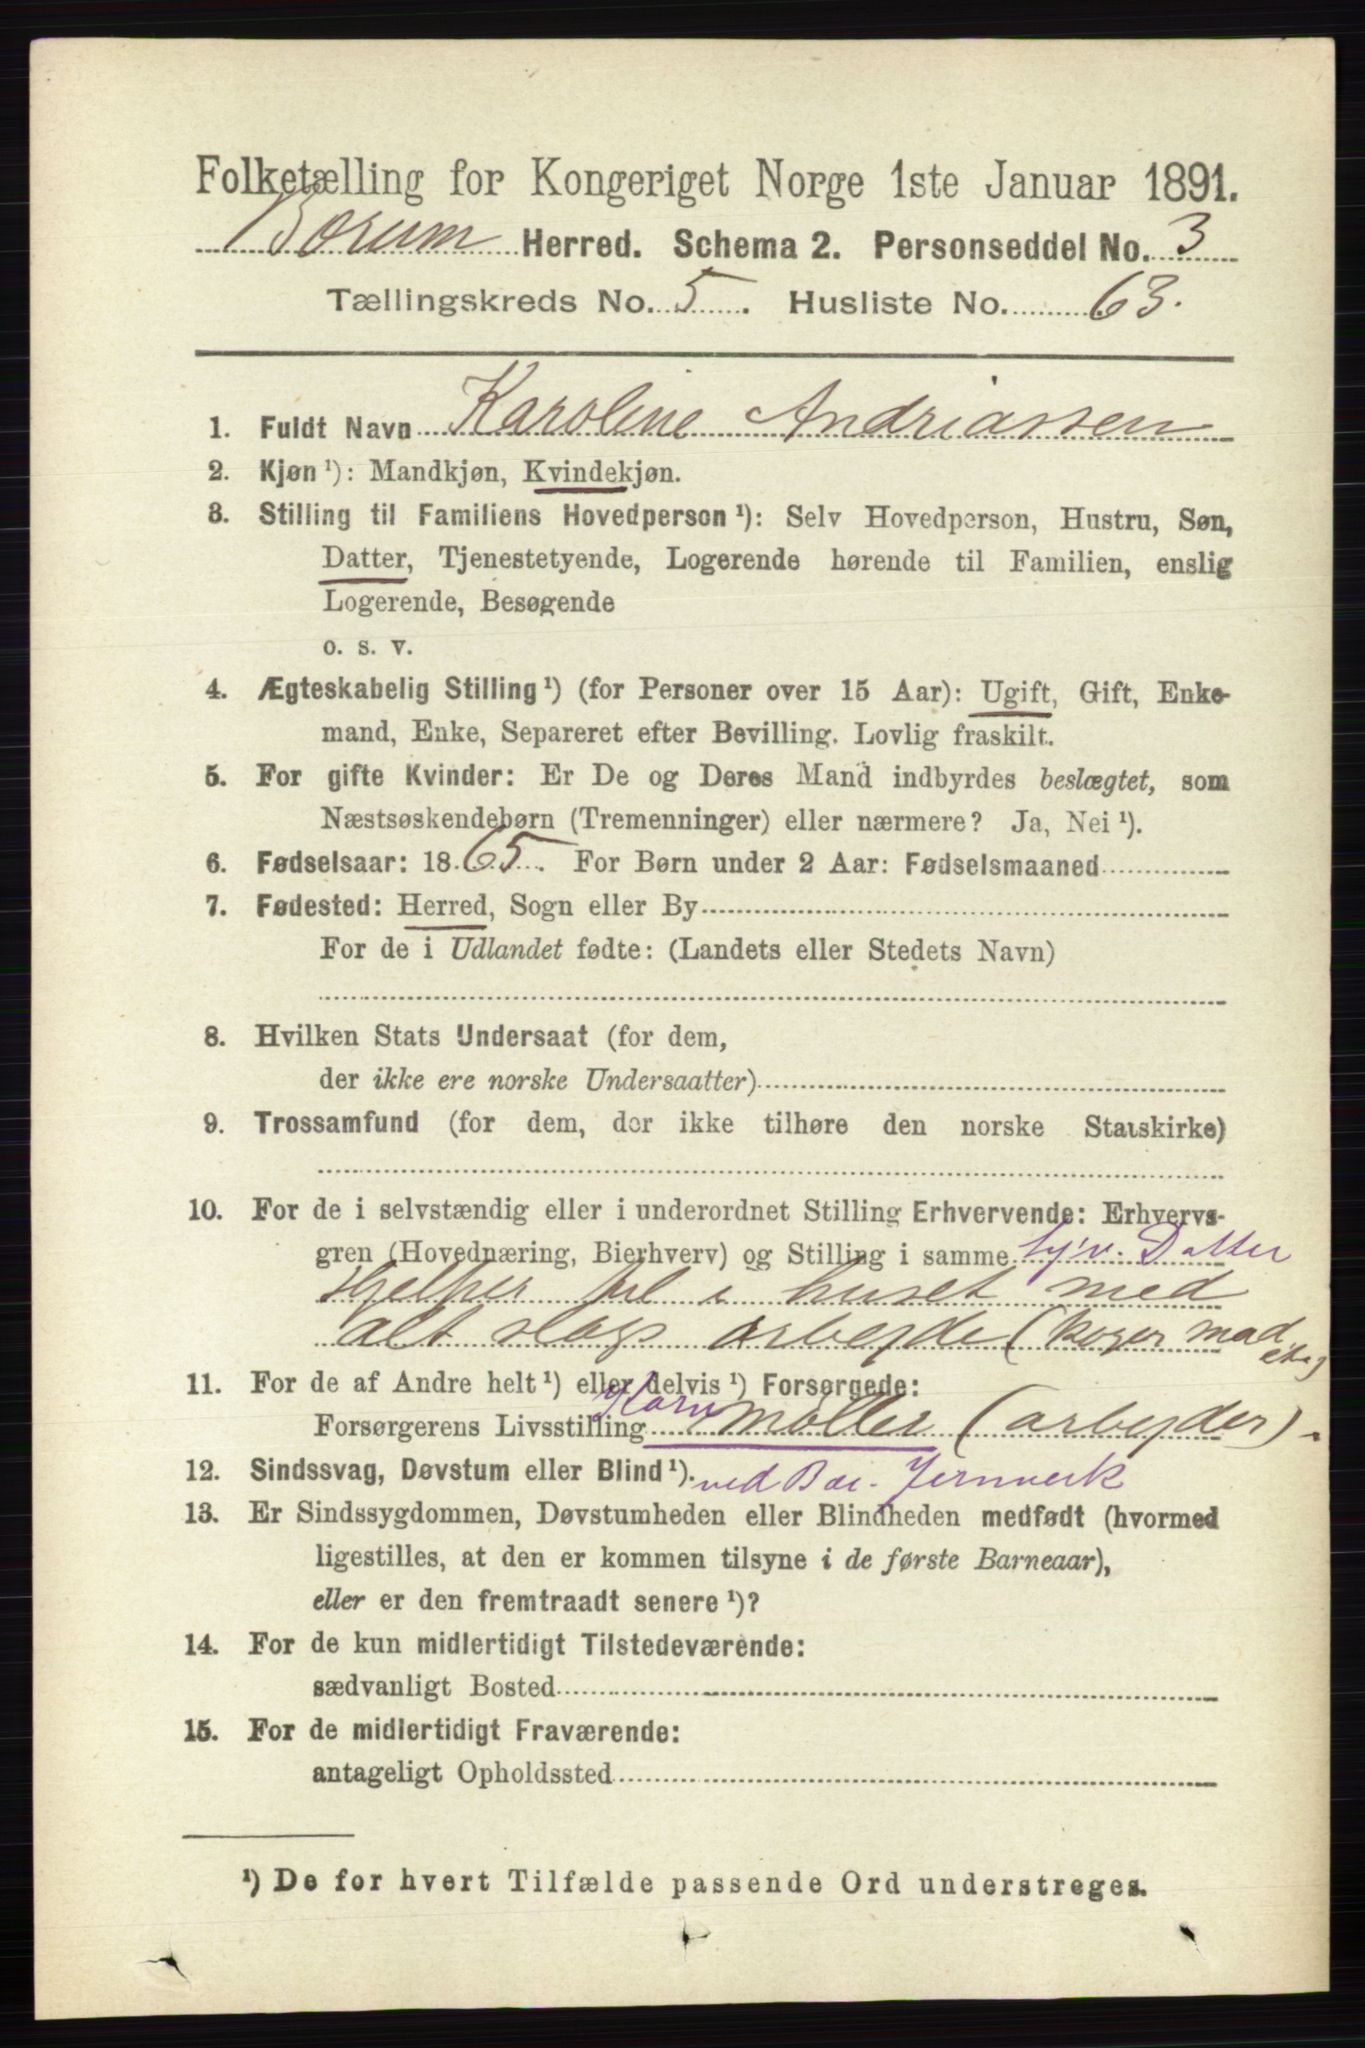 Folketælling for Kongeriget Norge 1ste Januar 1891.
Bærum Herred. Schema 2. Personseddel No. 3
Tællingskreds No. 5. Husliste No. 63.
1. Fuldt Navn Karoline Andriassen
2. Kjøn ¹): Mandkjøn, Kvindekjøn.
3. Stilling til Familiens Hovedperson ¹): Selv Hovedperson, Hustru, Søn,
Datter, Tjenestetyende, Logerende hørende til Familien, enslig
Logerende, Besøgende
o. s. v.
4. Ægteskabelig Stilling ¹) (for Personer over 15 Aar): Ugift, Gift, Enke-
mand, Enke, Separeret efter Bevilling. Lovlig fraskilt.
5. For gifte Kvinder: Er De og Deres Mand indbyrdes beslægtet, som
Næstsøskendebørn (Tremenninger) eller nærmere? Ja, Nei ¹).
6. Fødselsaar: 1865. For Børn under 2 Aar: Fødselsmaaned
7. Fødested: Herred, Sogn eller By
For de i Udlandet fødte: (Landets eller Stedets Navn)
8. Hvilken Stats Undersaat (for dem,
der ikke ere norske Undersaatter)
9. Trossamfund (for dem, der ikke tilhøre den norske Statskirke)
10. For de i selvstændig eller i underordnet Stilling Erhvervende: Erhvervs-
gren (Hovednæring, Bierhverv) og Stilling i samme Hj'v. Datter
Hjelper til i huset med
alt slags arbejde (koger mad
etc)
11. For de af Andre helt ¹) eller delvis ¹) Forsørgede:
Forsørgerens Livsstilling Korn Møller (arbejder).
12. Sindssvag, Døvstum eller Blind ¹). ved Bæ. Jernverk
13. Er Sindssygdommen, Døvstumheden eller Blindheden medfødt (hvormed
ligestilles, at den er kommen tilsyne i de første Barneaar),
eller er den fremtraadt senere ¹)?
14. For de kun midlertidigt Tilstedeværende:
sædvanligt Bosted
15. For de midlertidigt Fraværende:
antageligt Opholdssted
¹) De for hvert Tilfælde passende Ord understreges.